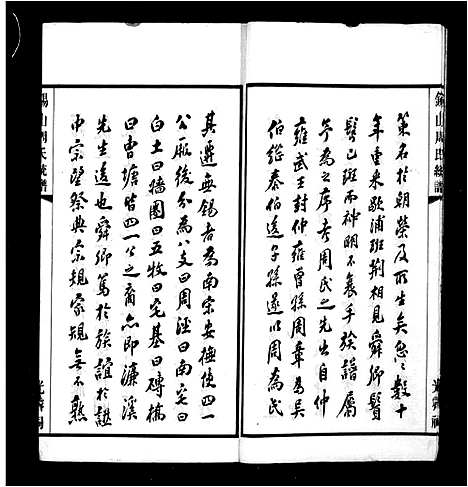 錫山周氏統譜
策名於朝榮及所生矣忽忽數十
年重来歇浦班荆相見舜卿鬢
髮已斑而神明不衰手族譜屬
予為之序考周氏之先出自仲
雍武王封仲雍曾孫周章為吳
伯继泰伯後子孫遂以周為氏
其遷無錫者為南宗安撫使四一
公厥後分為八支曰周涇曰南宅曰
白土曰牆園曰五牧曰宅基曰磚橋
曰曹塘皆四一公之裔亦即濂溪
先生遠也舜卿篤於族誼於譜
中宗壁祭典宗規家規無不熟
錫山周氏統譜
光霽祠